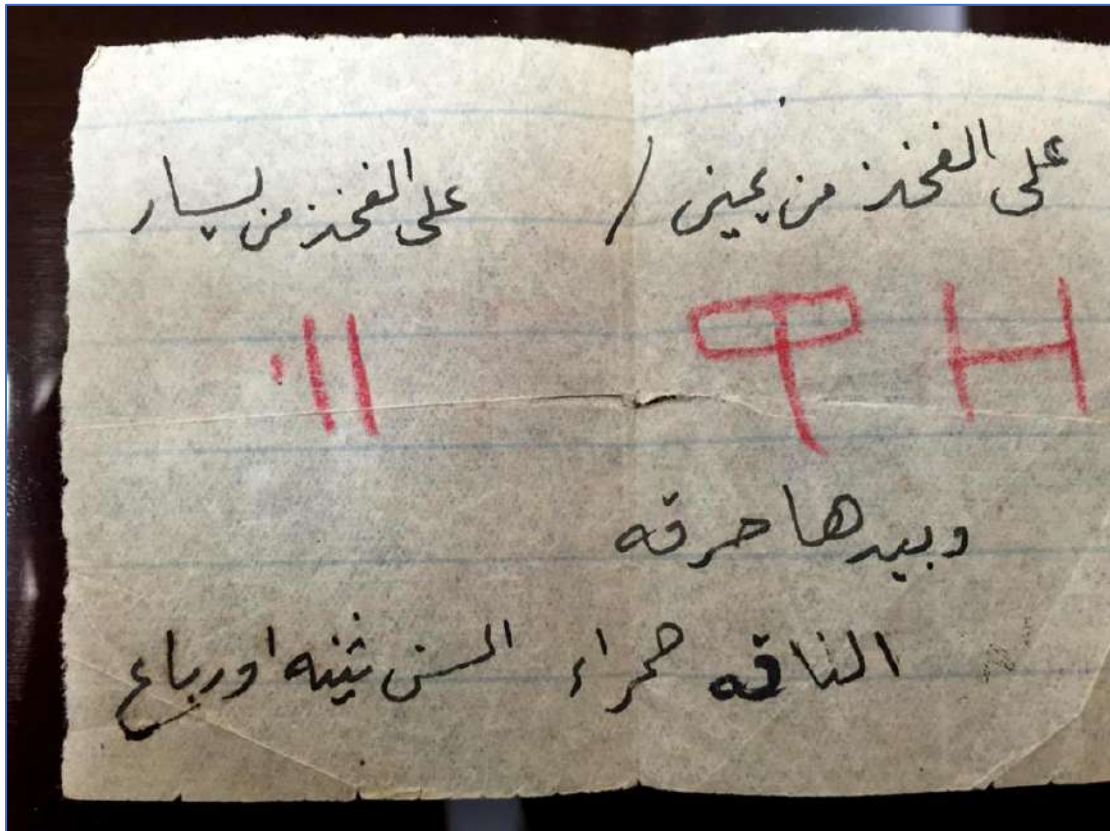 على الفخذ من يمين / على الفخذ من يسار
H
وبيدها حرقه
الناقه حمراء السن ثنيه او رباع